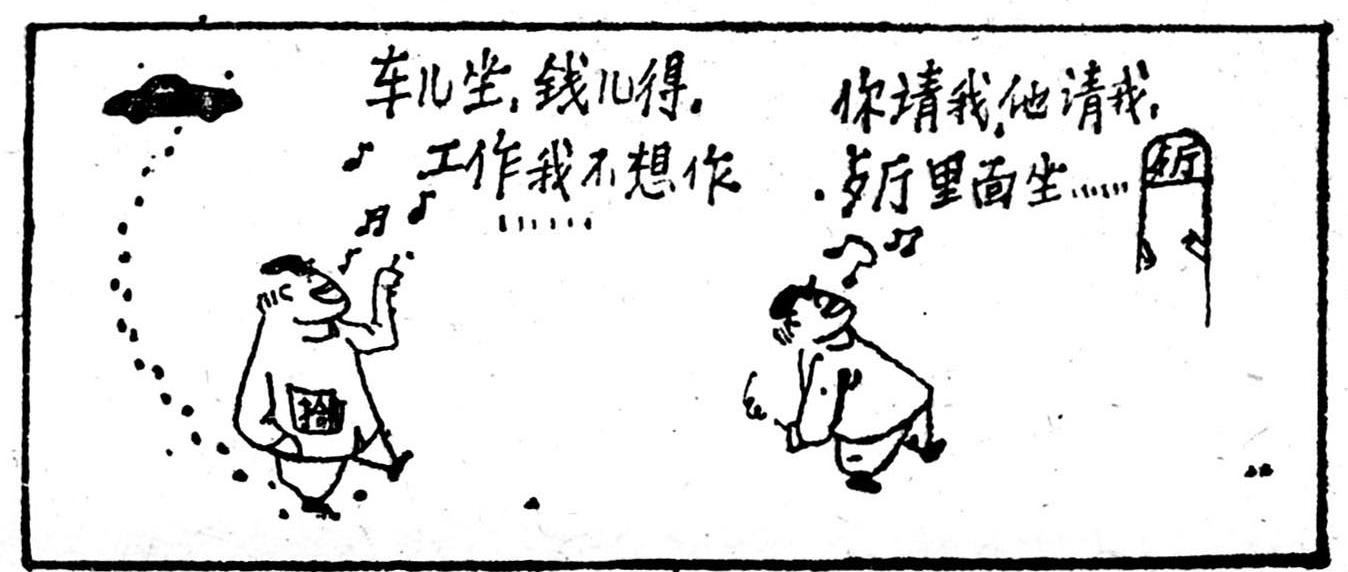 车儿坐，钱儿得。
工作我不想作
……
你请我，他请我，
歺厅里面坐……
歺厅
拾